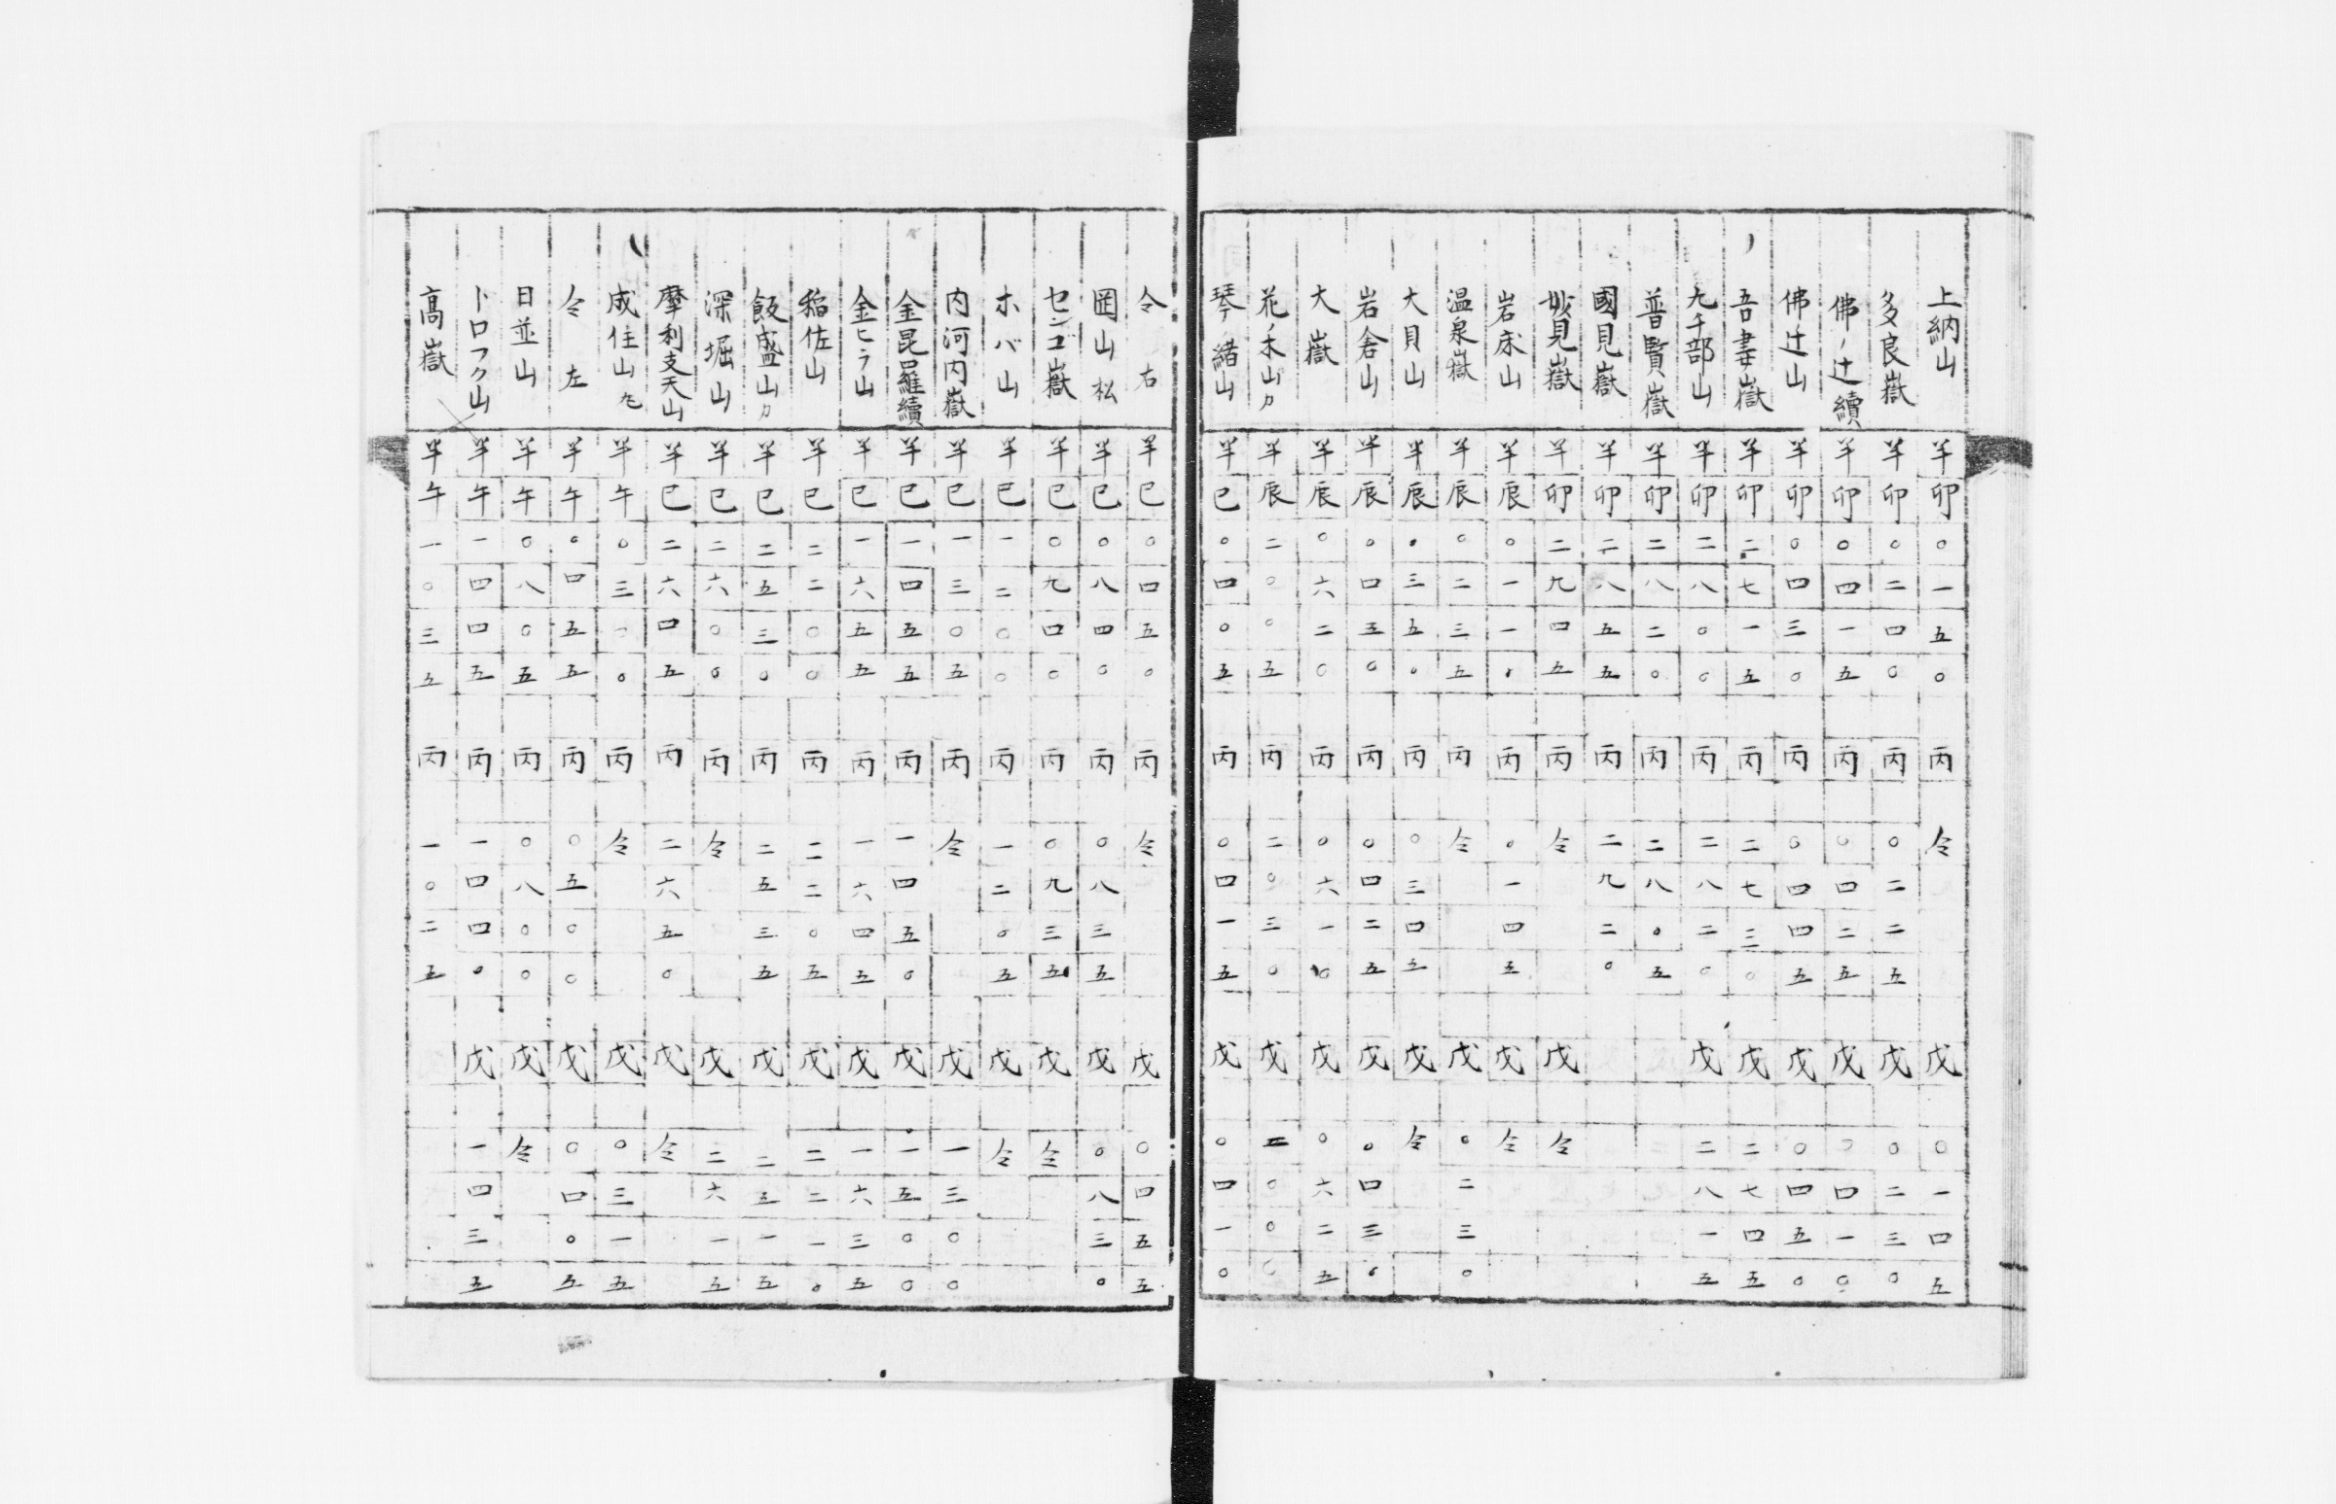 上納山 半卯〇一五〇 丙仝 戊〇一四五
多良嶽 半卯〇二四〇 丙〇二二五 戊〇二三〇
佛ノ辻續 半卯〇四一五 丙〇四二五 戊〇四一〇
佛辻山 半卯〇四三〇 丙〇四四五 戊〇四五〇
吾妻嶽 半卯二七一五 丙二七三〇 戊二七四五
九千部山 半卯二八〇〇 丙二八二〇 戊二八一五
普賢嶽 半卯二八二〇 丙二八〇五
國見嶽 半卯二八五五 丙二九二〇
妙見嶽 半卯二九四五 丙仝 戊仝
岩床山 半辰〇一一〇 丙〇一四五 戊仝
温泉嶽 半辰〇二三五 丙仝 戊〇二三〇
大貝山 半辰〇三五〇 丙〇三四五 戊仝
岩倉山 半辰〇四五〇 丙〇四二五 戊〇四三〇
大嶽 半辰〇六二〇 丙〇六一〇 戊〇六二五
花ノ木山カ 半辰二〇〇五 丙二〇三〇 戊二〇〇〇
琴ノ緒山 半巳〇四〇五 丙〇四一五 戊〇四一〇
仝 右 半巳〇四五〇 丙仝 戊〇四五五
岡山松 半巳〇八四〇 丙〇八三五 戊〇八三〇
センゴ嶽 半巳〇九四〇 丙〇九三五 戊仝
ホバ山 半巳一二〇〇 丙一二〇五 戊仝
内河内嶽 半巳一三〇五 丙仝 戊一三〇〇
金昆羅續 半巳一四五五 丙一四五〇 戊一五〇〇
金ヒラ山 半巳一六五五 丙一六四五 戊一六三五
稲佐山 半巳二二〇〇 丙二二〇五 戊二二一〇
飯盛山カ 半巳二五三〇 丙二五三五 戊二五一五
深堀山 半巳二六〇〇 丙仝 戊二六一五
摩利支天山 半巳二六四五 丙二六五〇 戊仝
成住山 半午〇三〇〇 丙仝 戊〇三一五
仝 左 半午〇四五五 丙〇五〇〇 戊〇四〇五
日並山 半午〇八〇五 丙〇八〇〇 戊仝
トロフク山 半午一四四五 丙一四四〇 戊一四三五
高嶽 半午一〇三五 丙一〇二五